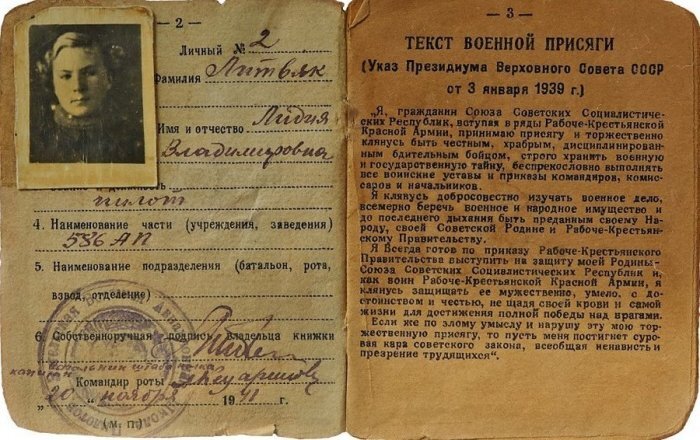 — 2 —
Личный № 2
Фамилия Литвяк
Имя и отчество Лидия
Владимировна
пилот
4. Наименование части (учреждения, заведения)
586 АП
5. Наименование подразделения (батальон, рота,
взвод, отделение)
6. Собственноручная подпись владельца книжки
начальник штаба
капитан
Командир роты
„20“ ноября 1941 г.
(м. п.)
— 3 —
ТЕКСТ ВОЕННОЙ ПРИСЯГИ
(Указ Президиума Верховного Совета СССР
от 3 января 1939 г.)
„Я, гражданин Союза Советских Социалистиче-
ских Республик, вступая в ряды Рабоче-Крестьянской
Красной Армии, принимаю присягу и торжественно
клянусь быть честным, храбрым, дисциплинирован-
ным бдительным бойцом, строго хранить военную
и государственную тайну, беспрекословно выполнять
все воинские уставы и приказы командиров, комис-
саров и начальников.
Я клянусь добросовестно изучать военное дело,
всемерно беречь военное и народное имущество и
до последнего дыхания быть преданным своему На-
роду, своей Советской Родине и Рабоче-Крестьян-
скому Правительству.
Я всегда готов по приказу Рабоче-Крестьянского
Правительства выступить на защиту моей Родины-
Союза Советских Социалистических Республик и,
как воин Рабоче-Крестьянской Красной Армии, я
клянусь защищать ее мужественно, умело, с до-
стоинством и честью, не щадя своей крови и самой
жизни для достижения полной победы над врагами.
Если же по злому умыслу и нарушу эту мою тор-
жественную присягу, то пусть меня постигнет суро-
вая кара советского закона, всеобщая ненависть и
презрение трудящихся“.